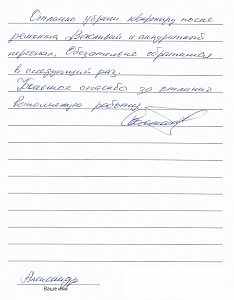 Отлично убрали квартиру после
ремонта. Вежливый и аккуратный
персонал. Обязательно обратимся
в следующий раз.
Большое спасибо за отлично
выполненую работу.
Александр
Ваше имя